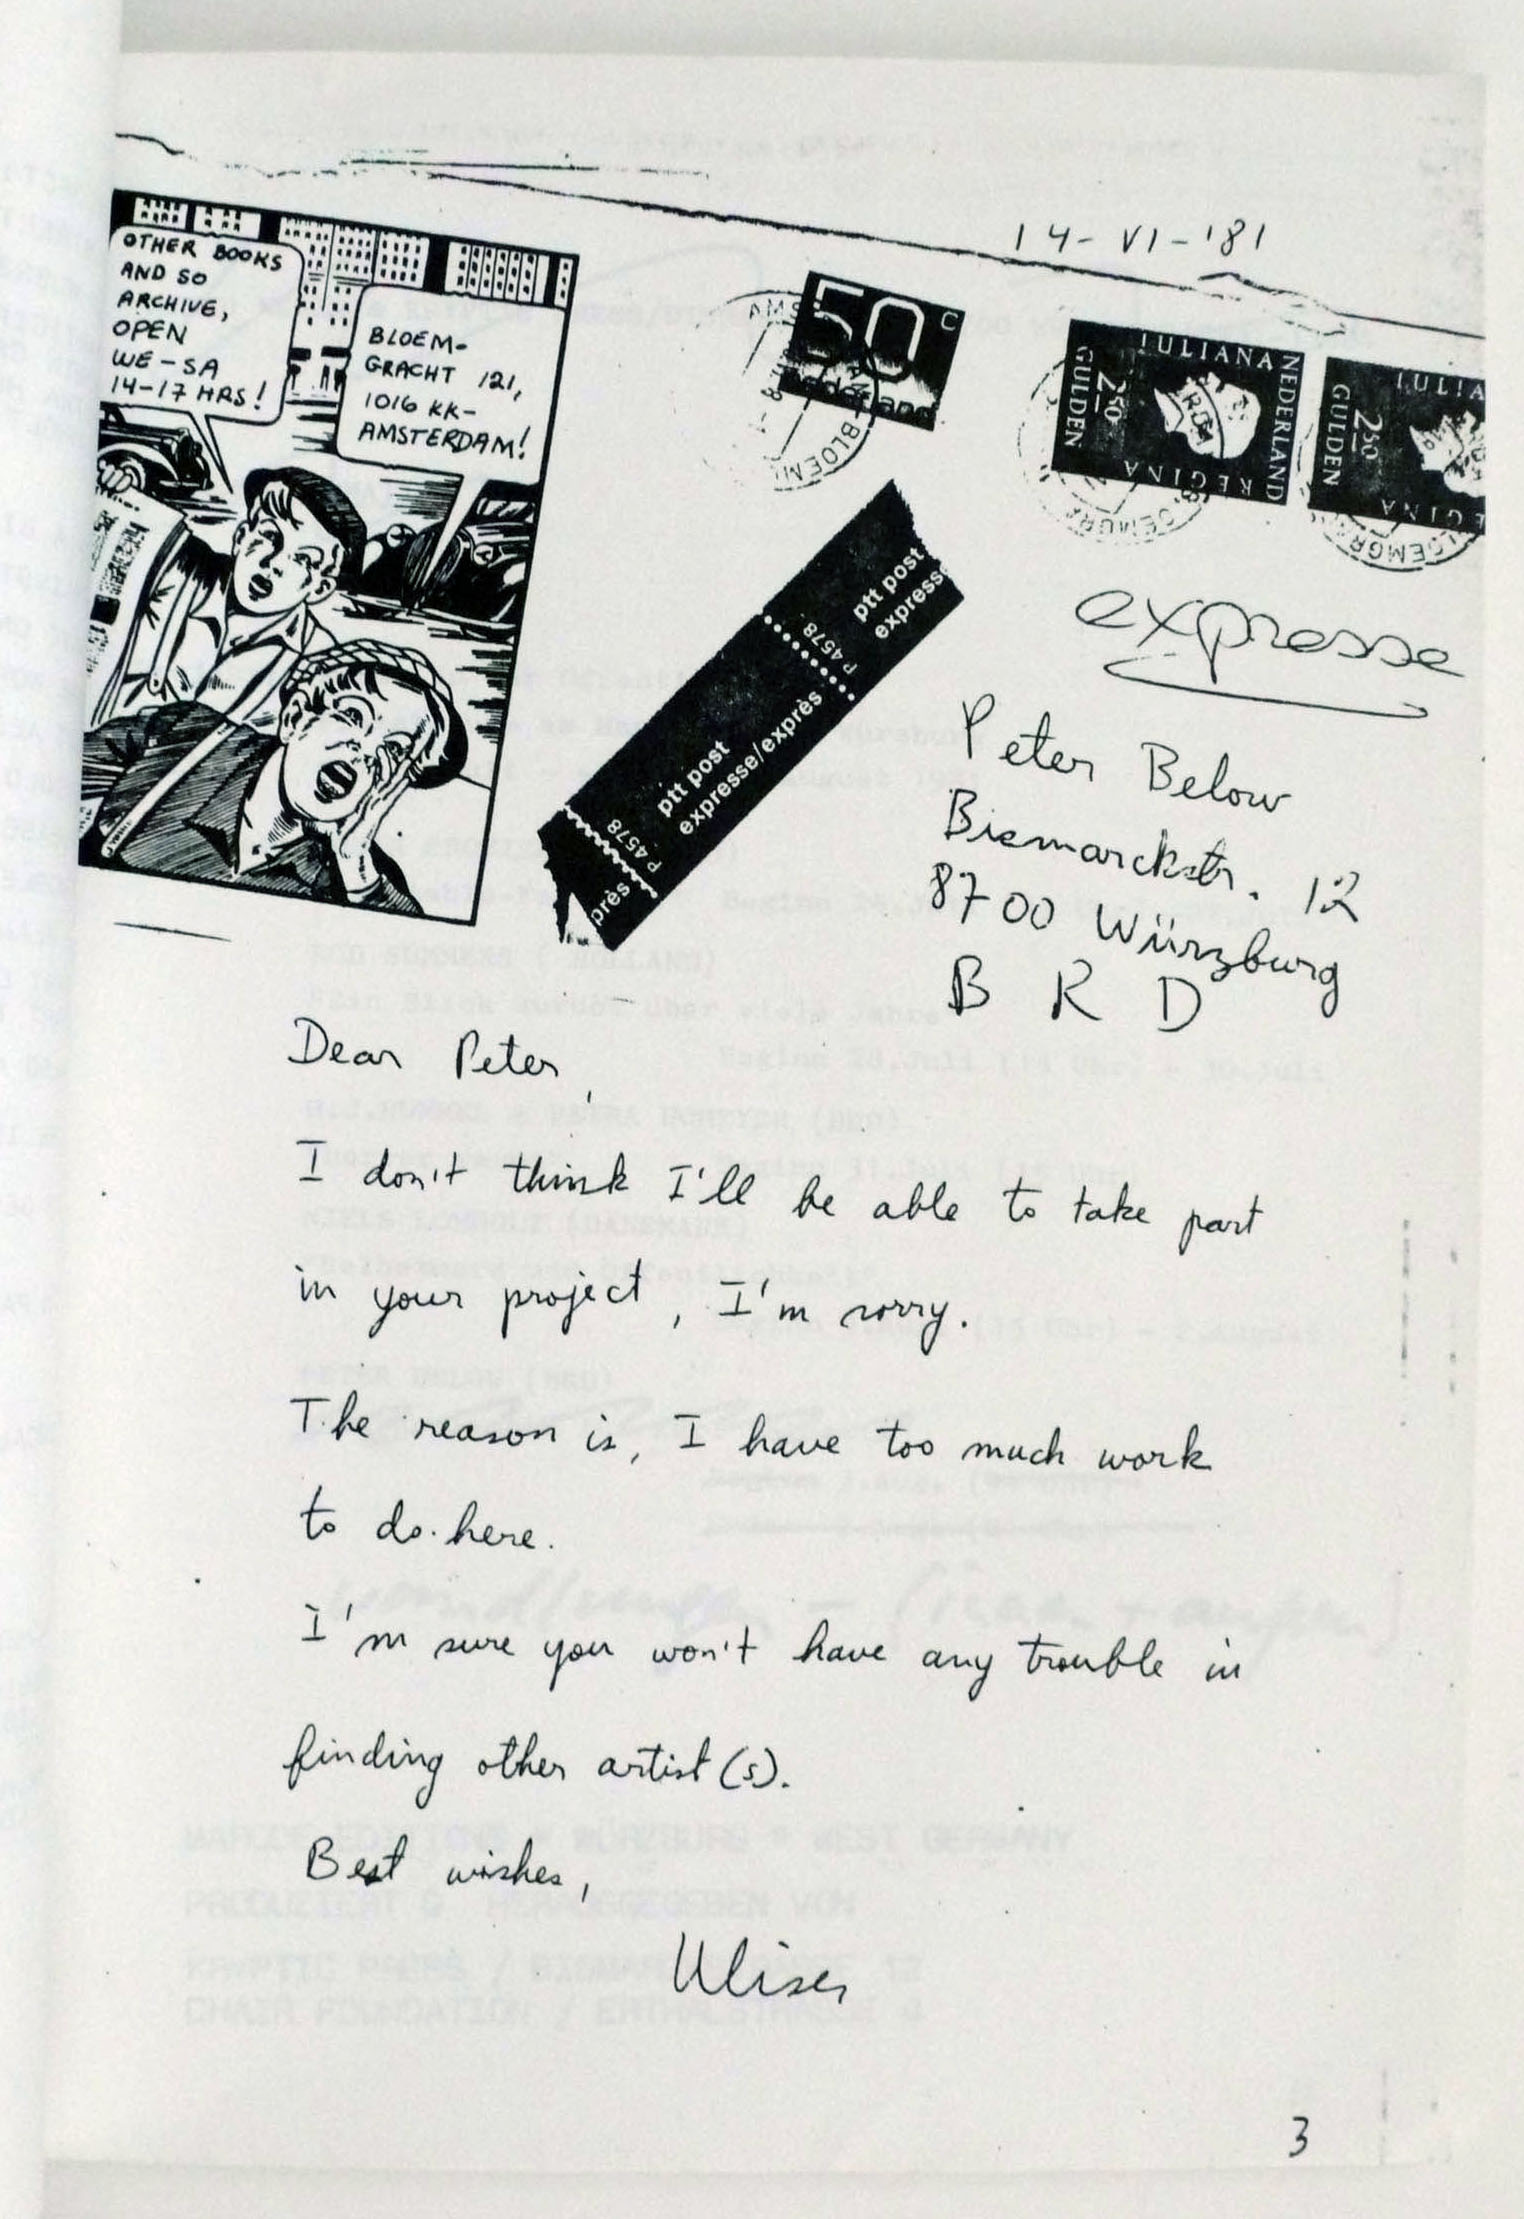 14-VI-'81
OTHER BOOKS
AND SO
ARCHIVE,
OPEN
WE-SA
14-17 HRS!
BLOEM-
GRACHT 121,
1016 KK-
AMSTERDAM!
50 C
Nederland
IULIANA
NEDERLAND
REGINA
2 50
GULDEN
IULIA
2 50
GULDEN
ptt post
expresse
P 4578
ptt post
expresse/exprès
P 4578
près
expresse
Peter Below
Bismarckstr. 12
8700 Würzburg
B R D
Dear Peter,
I don't think I'll be able to take part
in your project, I'm sorry.
The reason is, I have too much work
to do here.
I'm sure you won't have any trouble in
finding other artist(s).
Best wishes,
Ulises
3